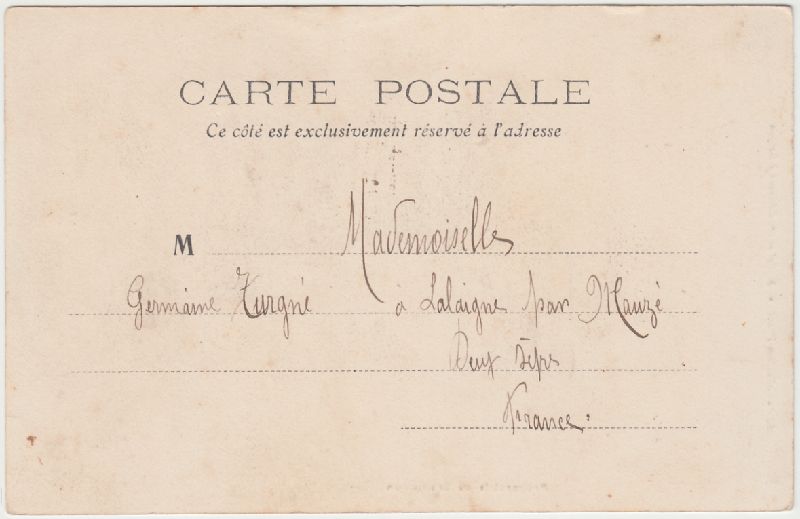 CARTE POSTALE
Ce côté est exclusivement réservé à l'adresse
M Mademoiselle
Germaine Turgné à Lalaigne par Mauzé
Deux Sèvres
France.